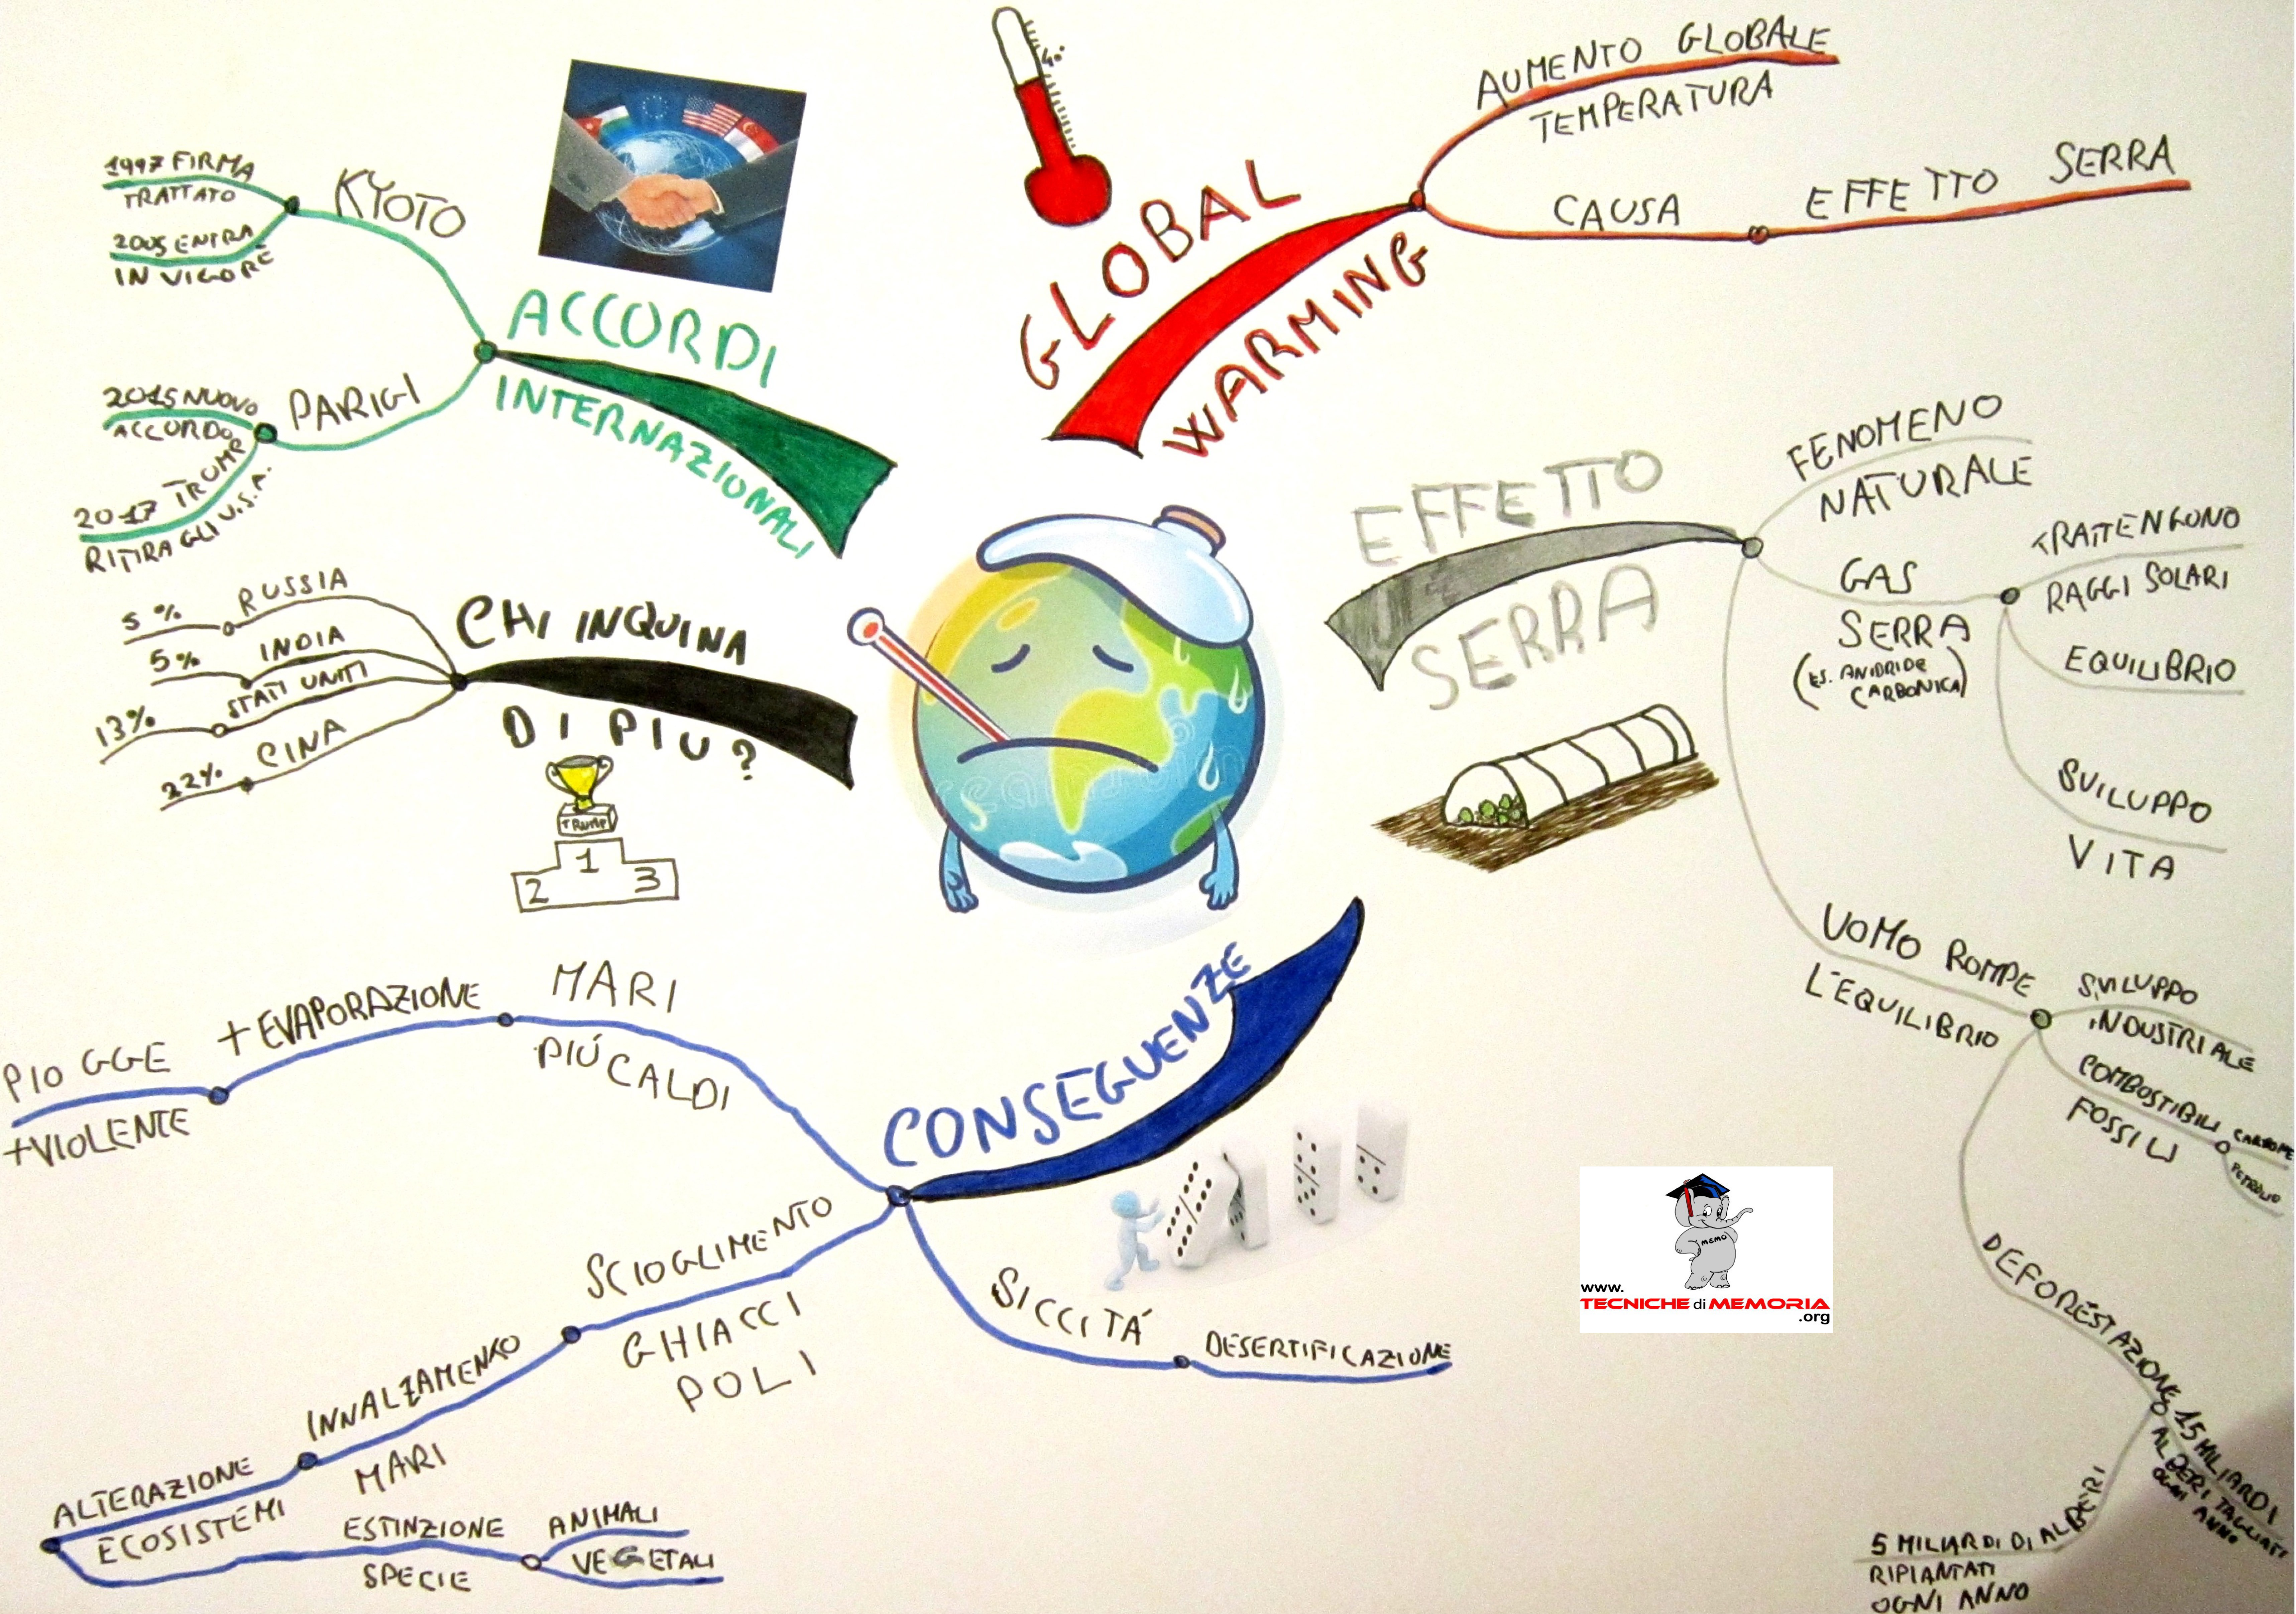 GLOBAL
WARMING
4°
AUMENTO GLOBALE
TEMPERATURA
CAUSA
EFFETTO SERRA
EFFETTO
SERRA
FENOMENO
NATURALE
GAS
SERRA
(ES. ANIDRIDE
CARBONICA)
TRATTENGONO
RAGGI SOLARI
EQUILIBRIO
SVILUPPO
VITA
UOMO ROMPE
L'EQUILIBRIO
SVILUPPO
INDUSTRIALE
COMBOSTIBILI
FOSSILI
CARBONE
PETROLIO
DEFORESTAZIONE
15 MILIARDI
ALBERI TAGLIATI
OGNI ANNO
5 MILIARDI DI ALBERI
RIPIANTATI
OGNI ANNO
CONSEGUENZE
SICCITÁ
DESERTIFICAZIONE
SCIOGLIMENTO
GHIACCI
POLI
INNALZAMENTO
MARI
ALTERAZIONE
ECOSISTEMI
ESTINZIONE
SPECIE
ANIMALI
VEGETALI
MARI
PIÚ CALDI
+ EVAPORAZIONE
PIOGGE
+VIOLENTE
CHI INQUINA
DI PIU?
RUSSIA
5 %
INDIA
5%
STATI UNITI
13%
CINA
22%
TRUMP
1
2
3
ACCORDI
INTERNAZIONALI
KYOTO
1997 FIRMA
TRATTATO
2005 ENTRA
IN VIGORE
PARIGI
2015 NUOVO
ACCORDO
2017 TRUMP
RITIRA GLI U.S.A.
MEMO
www.
TECNICHE di MEMORIA
.org